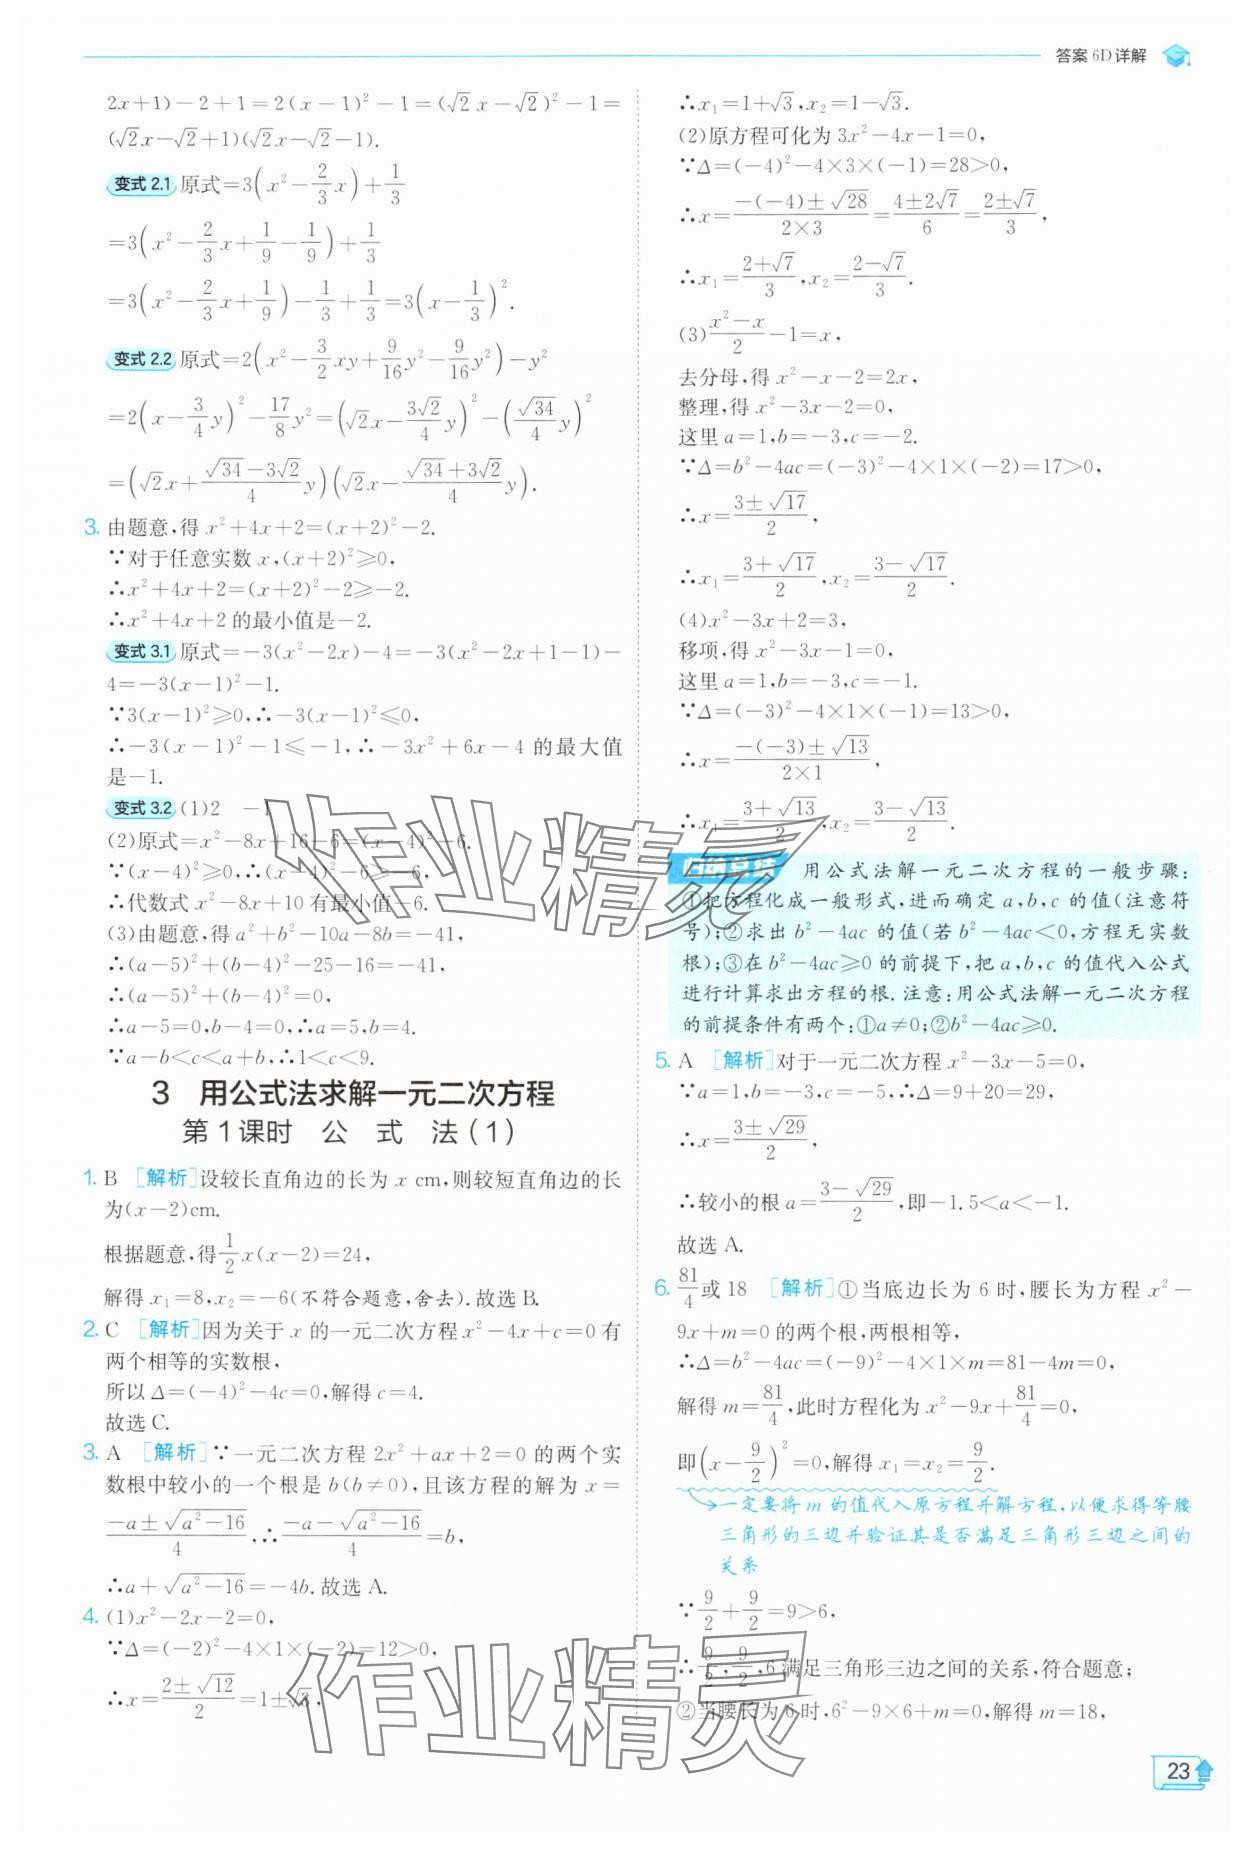 答案 6D 详解
2x+1)-2+1=2(x-1)²-1=(√2x-√2)²-1=
(√2x-√2+1)(√2x-√2-1).
变式2.1 原式=3(x²-2/3x)+1/3
=3(x²-2/3x+1/9-1/9)+1/3
=3(x²-2/3x+1/9)-1/3+1/3=3(x-1/3)².
变式2.2 原式=2(x²-3/2xy+9/16y²-9/16y²)-y²
=2(x-3/4y)²-17/8y²=(√2x-3√2/4y)²-(√34/4y)²
=(√2x+(√34-3√2)/4y)(√2x-(√34+3√2)/4y).
3. 由题意,得 x²+4x+2=(x+2)²-2.
∵对于任意实数 x,(x+2)²≥0,
∴x²+4x+2=(x+2)²-2≥-2.
∴x²+4x+2 的最小值是-2.
变式3.1 原式=-3(x²-2x)-4=-3(x²-2x+1-1)-
4=-3(x-1)²-1.
∵3(x-1)²≥0,∴-3(x-1)²≤0,
∴-3(x-1)²-1≤-1,∴-3x²+6x-4 的最大值
是-1.
变式3.2 (1)2 -1
(2)原式=x²-8x+16-6=(x-4)²-6.
∵(x-4)²≥0,∴(x-4)²-6≥-6,
∴代数式 x²-8x+10 有最小值-6.
(3)由题意,得 a²+b²-10a-8b=-41,
∴(a-5)²+(b-4)²-25-16=-41,
∴(a-5)²+(b-4)²=0,
∴a-5=0,b-4=0,∴a=5,b=4.
∵a-b<c<a+b,∴1<c<9.
3 用公式法求解一元二次方程
第1课时 公 式 法(1)
1. B [解析]设较长直角边的长为 x cm,则较短直角边的长
为(x-2)cm.
根据题意,得1/2x(x-2)=24,
解得 x₁=8,x₂=-6(不符合题意,舍去).故选 B.
2. C [解析]因为关于 x 的一元二次方程 x²-4x+c=0 有
两个相等的实数根,
所以 Δ=(-4)²-4c=0,解得 c=4.
故选 C.
3. A [解析]∵一元二次方程 2x²+ax+2=0 的两个实
数根中较小的一个根是 b(b≠0),且该方程的解为 x=
(-a±√(a²-16))/4,∴(-a-√(a²-16))/4=b,
∴a+√(a²-16)=-4b.故选 A.
4. (1)x²-2x-2=0,
∵Δ=(-2)²-4×1×(-2)=12>0,
∴x=(2±√12)/2=1±√3,
∴x₁=1+√3,x₂=1-√3.
(2)原方程可化为 3x²-4x-1=0,
∵Δ=(-4)²-4×3×(-1)=28>0,
∴x=(-(-4)±√28)/(2×3)=(4±2√7)/6=(2±√7)/3,
∴x₁=(2+√7)/3,x₂=(2-√7)/3.
(3)(x²-x)/2-1=x,
去分母,得 x²-x-2=2x,
整理,得 x²-3x-2=0,
这里 a=1,b=-3,c=-2.
∵Δ=b²-4ac=(-3)²-4×1×(-2)=17>0,
∴x=(3±√17)/2,
∴x₁=(3+√17)/2,x₂=(3-√17)/2.
(4)x²-3x+2=3,
移项,得 x²-3x-1=0,
这里 a=1,b=-3,c=-1.
∵Δ=(-3)²-4×1×(-1)=13>0,
∴x=(-(-3)±√13)/(2×1),
∴x₁=(3+√13)/2,x₂=(3-√13)/2.
归纳总结 用公式法解一元二次方程的一般步骤:
①把方程化成一般形式,进而确定 a,b,c 的值(注意符
号);②求出 b²-4ac 的值(若 b²-4ac<0,方程无实数
根);③在 b²-4ac≥0 的前提下,把 a,b,c 的值代入公式
进行计算求出方程的根.注意:用公式法解一元二次方程
的前提条件有两个:①a≠0;②b²-4ac≥0.
5. A [解析]对于一元二次方程 x²-3x-5=0,
∵a=1,b=-3,c=-5,∴Δ=9+20=29,
∴x=(3±√29)/2,
∴较小的根 a=(3-√29)/2,即-1.5<a<-1.
故选 A.
6. 81/4或 18 [解析]①当底边长为 6 时,腰长为方程 x²-
9x+m=0 的两个根,两根相等,
∴Δ=b²-4ac=(-9)²-4×1×m=81-4m=0,
解得 m=81/4,此时方程化为 x²-9x+81/4=0,
即(x-9/2)²=0,解得 x₁=x₂=9/2.
一定要将 m 的值代入原方程并解方程,以便求得等腰
三角形的三边并验证其是否满足三角形三边之间的
关系
∵9/2+9/2=9>6,
∴9/2,9/2,6 满足三角形三边之间的关系,符合题意;
②当腰长为 6 时,6²-9×6+m=0,解得 m=18,
作业精灵
作业精灵
23